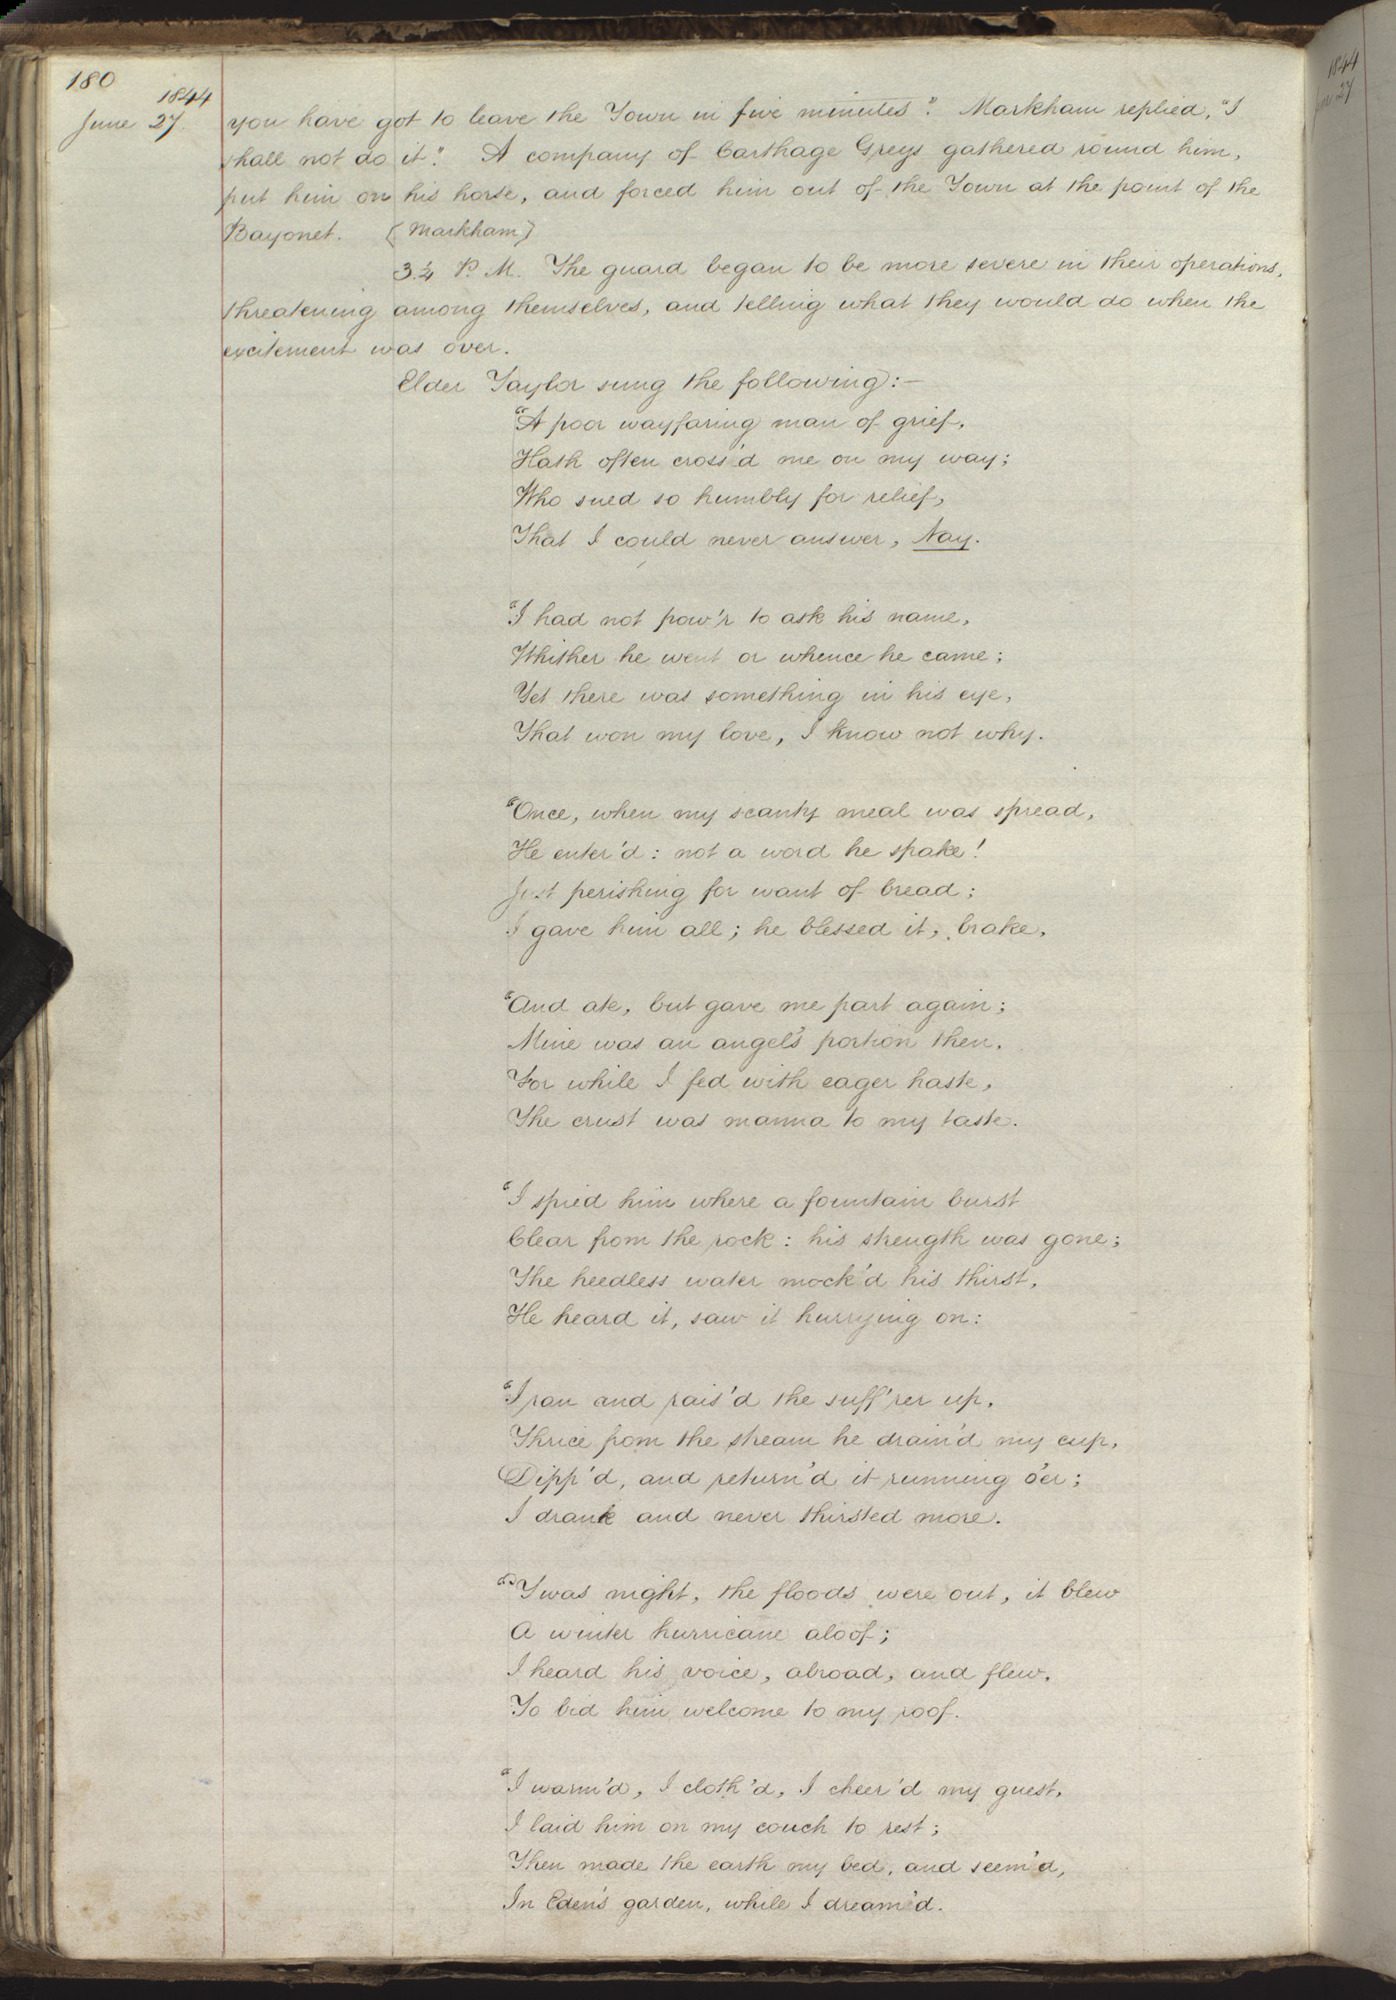 180
1844
June 27. you have got to leave the Town in five minutes". Markham replied, "I
shall not do it". A company of Carthage Greys gathered round him,
put him on his horse, and forced him out of the Town at the point of the
Bayonet. {Markham}
3.¼ P. M. The guard began to be more severe in their operations,
threatening among themselves, and telling what they would do when the
excitement was over.
Elder Taylor sung the following:—
"A poor wayfaring man of grief,
Hath often cross'd me on my way;
Who sued so humbly for relief,
That I could never answer, Nay.
"I had not pow'r to ask his name,
Whither he went or whence he came;
Yet there was something in his eye,
That won my love, I know not why.
"Once, when my scanty meal was spread,
He enter'd: not a word he spake!
Just perishing for want of bread;
I gave him all; he blessed it, brake,
"And ate, but gave me part again;
Mine was an angel's portion then,
For while I fed with eager haste,
The crust was manna to my taste.
"I spied him where a fountain burst
Clear from the rock: his strength was gone;
The heedless water mock'd his thirst,
He heard it, saw it hurrying on:
"I ran and rais'd the suff'rer up,
Thrice from the stream he drain'd my cup,
Dipp'd, and return'd it running o'er;
I drank and never thirsted more.
"'Twas night, the floods were out, it blew
A winter hurricane aloof;
I heard his voice, abroad, and flew,
To bid him welcome to my roof.
"I warm'd, I cloth'd, I cheer'd my guest,
I laid him on my couch to rest;
Then made the earth my bed, and seem'd,
In Eden's garden, while I dream'd.
1844
27